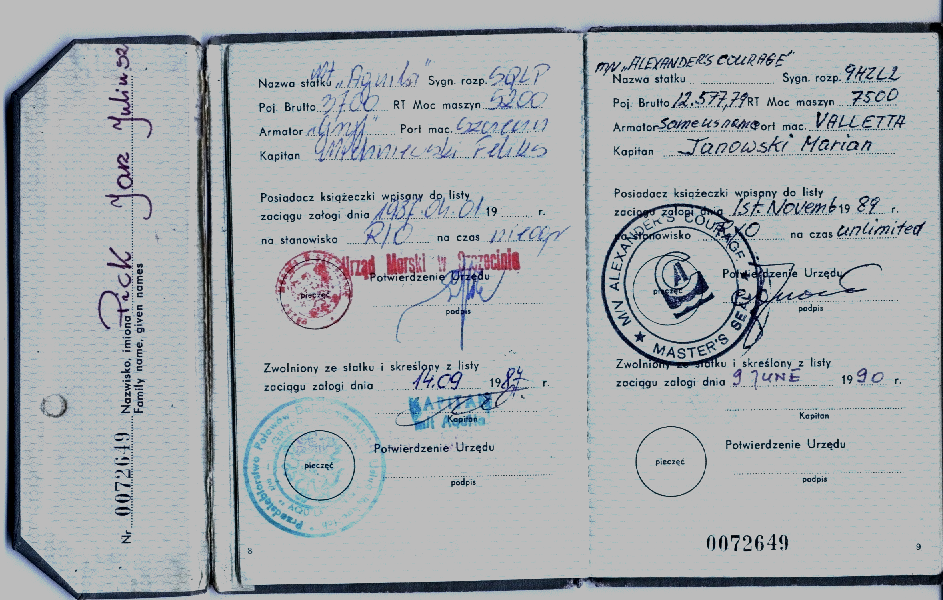 Nr 0072649 Nazwisko, imiona PICK Jorz Juliusz
Family name, given names
Nazwa statku m/t „Aquila” Sygn. rozp. SQLP
Poj. Brutto 3700 RT Moc maszyn 5200
Armator „Gryf” Port mac. Szczecin
Kapitan Feliks
Posiadacz książeczki wpisany do listy
zaciągu załogi dnia 1987.04.01 19 r.
na stanowisko R/O na czas nieogr
Urząd Morski w Szczecinie
Potwierdzenie Urzędu
pieczęć
podpis
Zwolniony ze statku i skreślony z listy
zaciągu załogi dnia 14.09 1987 r.
KAPITAN
Kapitan
m/t Aquila
Potwierdzenie Urzędu
pieczęć
podpis
8
M/V „ALEXANDER'S COURAGE”
Nazwa statku Sygn. rozp. 9HZL2
Poj. Brutto 12.577,79 RT Moc maszyn 7500
Armator Port mac. VALLETTA
Kapitan Janowski Marian
Posiadacz książeczki wpisany do listy
zaciągu załogi dnia 1st. Novemb 1989 r.
na stanowisko R/O na czas unlimited
M/V ALEXANDER'S COURAGE ★ MASTER'S SEAL ★
Potwierdzenie Urzędu
pieczęć
podpis
Zwolniony ze statku i skreślony z listy
zaciągu załogi dnia 9 JUNE 1990 r.
Kapitan
Potwierdzenie Urzędu
pieczęć
podpis
0072649
9